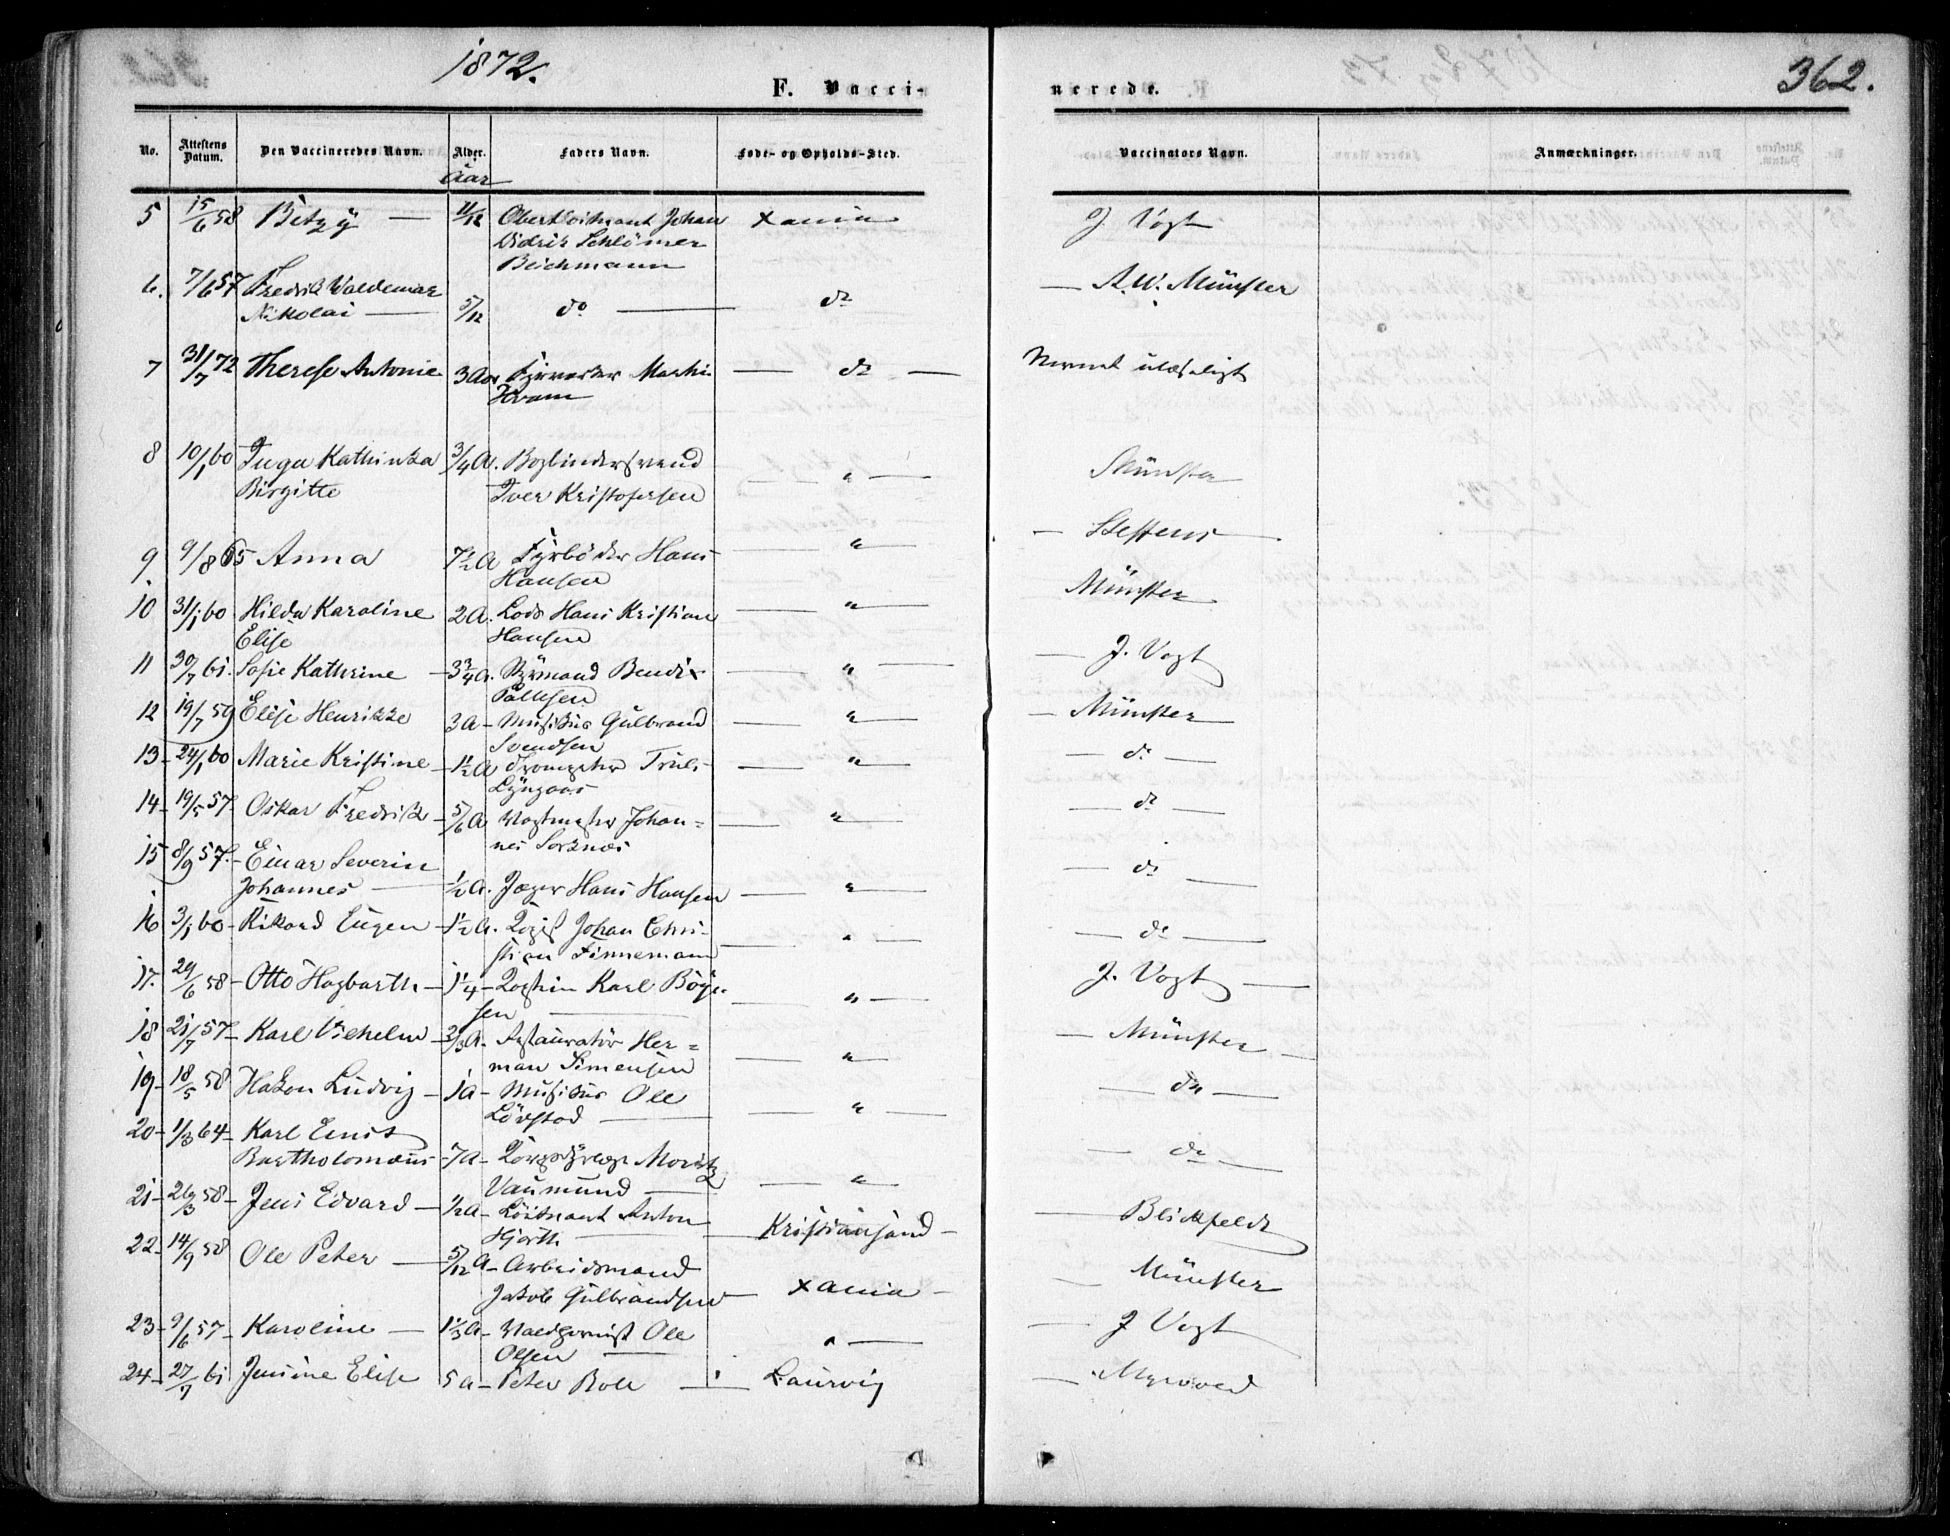 1872.
362.
F. Vacci-
nerede.
No. Attestens Datum. Den Vaccineredes Navn. Alder. Faders Navn. Føde- og Opholds-Sted. Vaccinators Navn. Anmærkninger.
Aar
5 15/6 58 Betzy — 11/12 Oberstloitnant Johan Xania J. Vogt
Didrik Schlömer
Beichmann
6. 7/6 57 Fredrik Waldemar
Nikolai — 5/12 do — do — A. W. Münster
7 31/7 72 Therese Antonie 3 Aar Fyrverker Martin — do — Navnet ulæseligt
Hvam
8 10/1 60 Inga Kathinka 3/4 A. Bogbindersvend — " — Münster
Birgitte Iver Kristofersen
9 9/8 65 Anna 7½ A Fyrbøder Hans — " — — Steffens —
Hansen
10 31/1 60 Hilda Karoline 2 A. Lods Hans Kristian — " — Münster
Elise Hansen
11 30/7 61. Sofie Kathrine — 3¾ A. Styrmand Bendix — " — — J. Vogt
Pallesen
12 19/7 59 Elise Henrikke 3 A — Musikus Gulbrand — " — — Münster
Svendsen
13 - 24/1 60 Marie Kristine - 1½ A Trompeter Truls — " — — do —
Lyngaas
14 - 19/5 57. Oskar Fredrik - 5/6 A Vagtmester Johan= — " — — do —
nes Sorknes
15 8/9 57. - Einar Severin
Johannes — ½ A. Jæger Hans Hansen — " — — do —
16 3/1 60 - Rikard Eugen - 1½ A. Logist Johan Chri- — " — — do —
stian Finnemann
17. 29/6 58 - Otto Hagbarth - 1¼ - Karl Böye- — " — J. Vogt —
sen —
18 21/7 57 - Karl Vilhelm - 2/3 A. Restauratör Her= — " — — Münster —
man Simensen
19 - 18/5 58 Hakon Ludvig - 1 A - Musikus Ole — " — — do —
Lövstad —
20 - 1/3 64 - Karl Ernst
Bartholomæus - 7 A - Moritz — " — — do —
Vaumund —
21 - 26/3 58 - Jens Edvard - ½ A - Löitnant Anton — Kristiansand — — Blichfeldt
Hjorth —
22 - 14/9 58 Ole Peter — 5/12 A - Arbeidsmand
Jakob Gulbrandsen — Xania — — Münster
23 - 9/6 57 - Karoline — 1⅓ A - Valdhornist Ole — " — — J Vogt
Olsen —
24 - 27/7 61 Jensine Elise 5 A - Peter Boll — Laurvig —